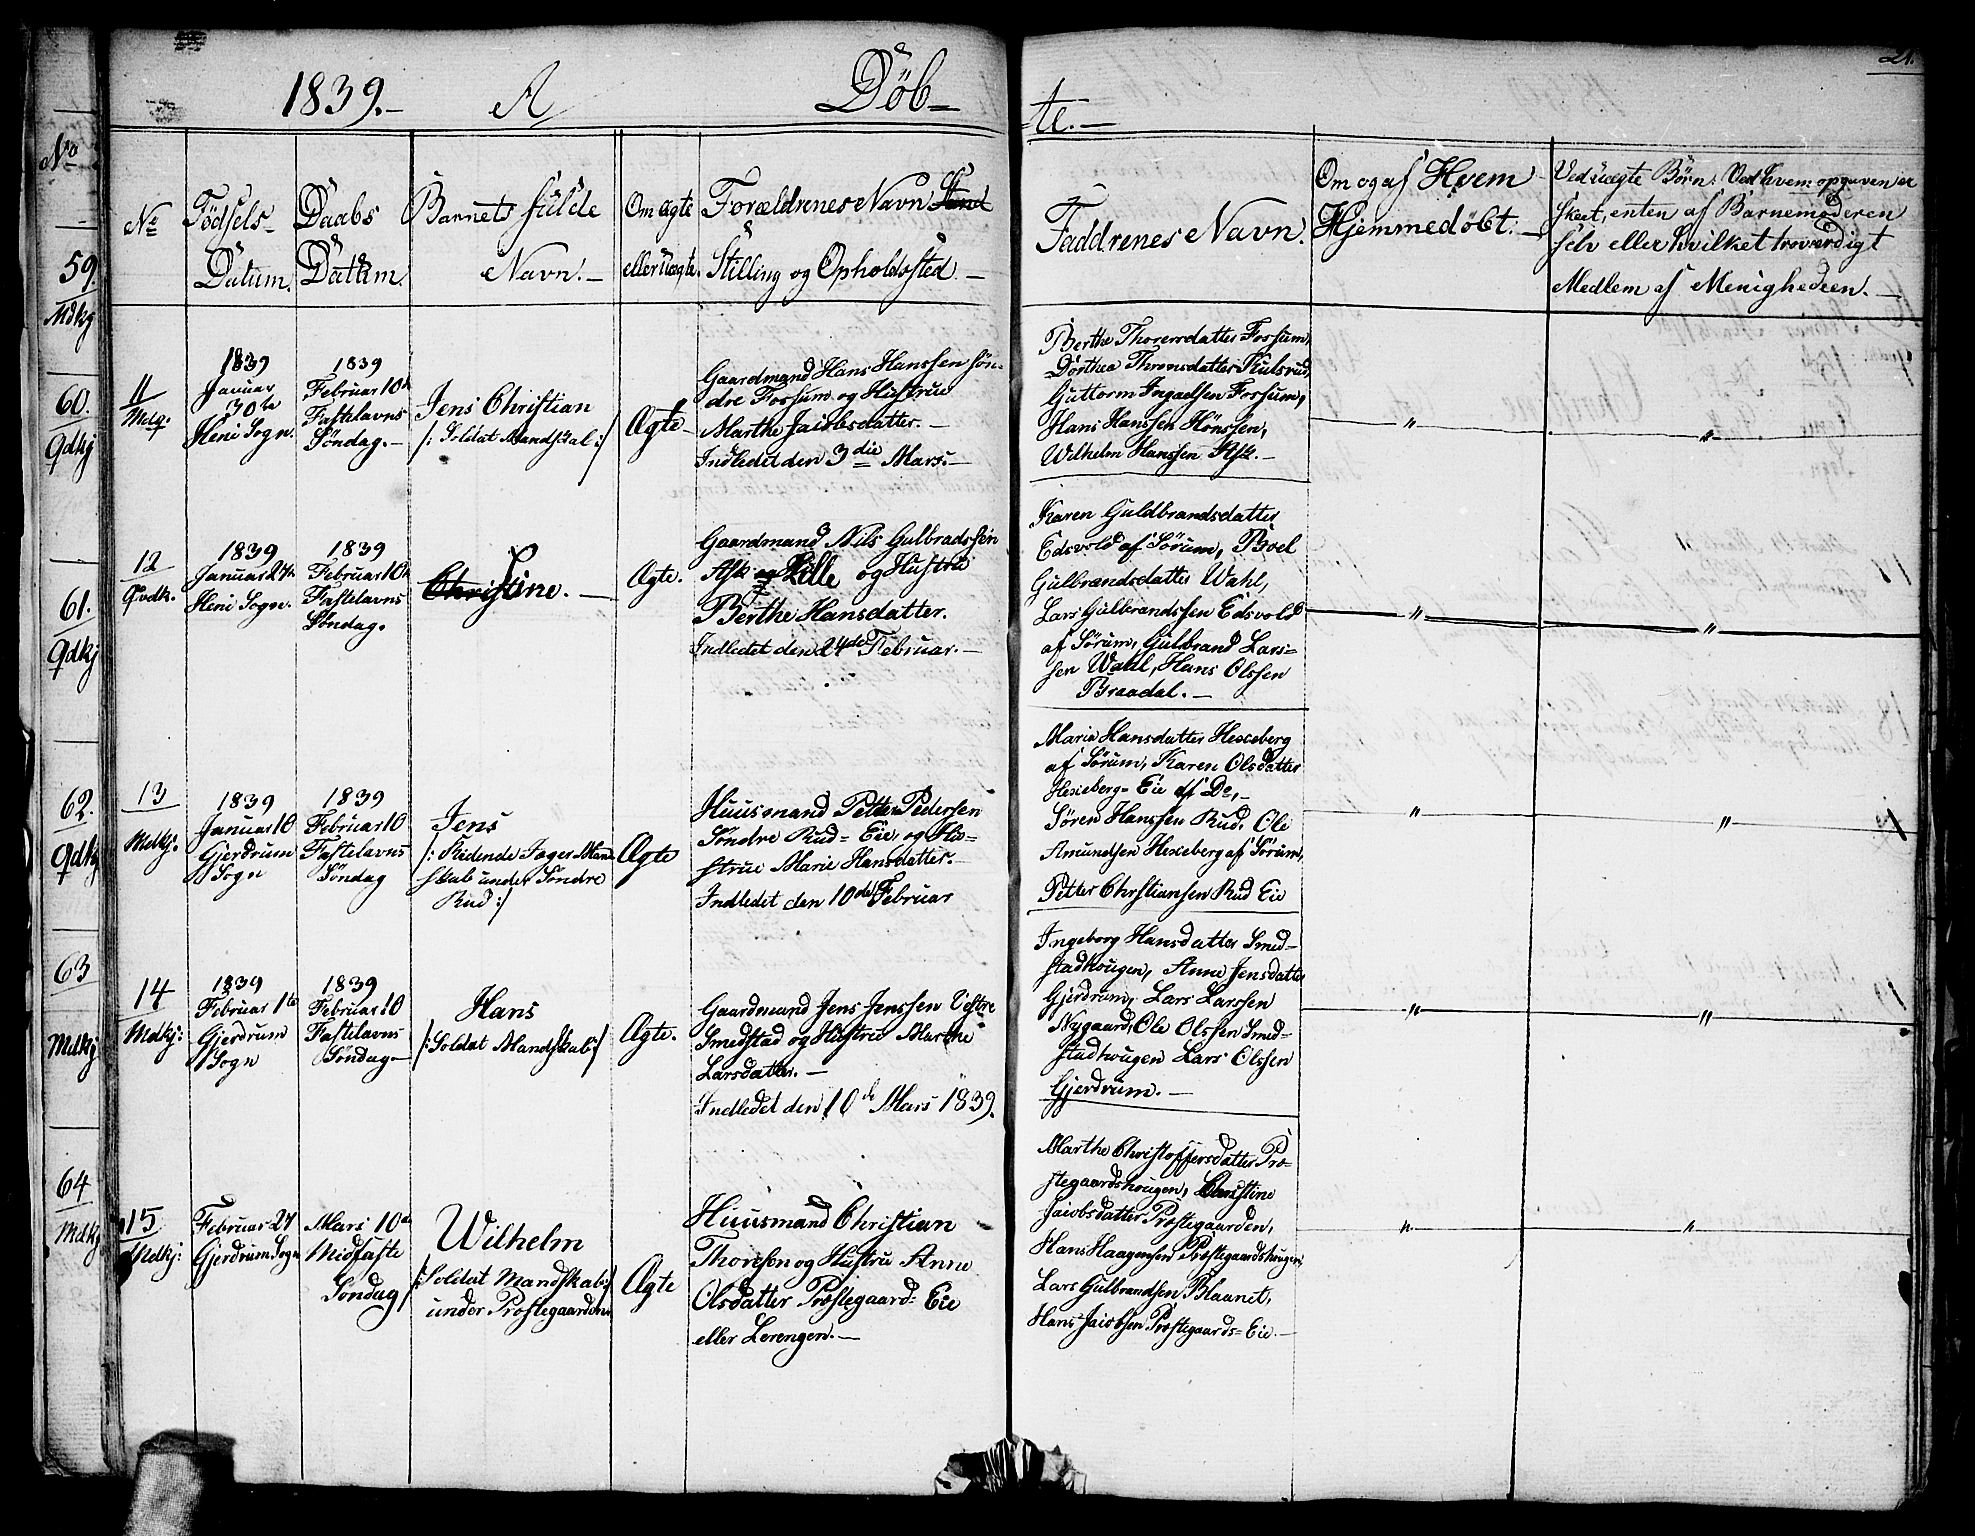 1839.— A Döb—
=te.—
21.
No
59.
Mdkj
60.
Qdkj
61.
Qdkj
62.
Qdkj
63
Mdkj
64
Mdkj
No
Födsels-
Datum.
Daabs
Datum.
Barnets fulde
Navn.—
Om ægte
eller uægte.
Forældrenes Navn Stand
Stilling og Opholdssted.—
Faddrenes Navn.
Om og af Hvem
Hjemmedöbt.—
Ved uægte Börn. Ved hvem opgaven er
skeet, enten af Barnemoderen
selv eller hvilket troværdigt
Medlem af Menigheden.—
11
Mdg.
1839
Januar
30te
Heni Sogn.
1839
Februar 10de
Fastelavns
Söndag.—
Jens Christian
/: Soldat Mandskab :/
Ægte—
Gaardmand Hans Hanssen sön-
dre Fossum og Hustrue
Marthe Jacobsdatter.—
Indledet den 3die Mars.—
Berthe Thorersdatter Fossum,
Dorthea Thronsdatter Kulsrud,
Guttorm Ingaelsen Fossum,
Hans Hanssen Hönssen,
Wilhelm Hanssen Ask.—
"
"
12
Qvdk.
1839
Januar 27de
Heni Sogn.
1839
Februar 10de
Fastelavns
Söndag.
Christine.—
Ægte.
Gaardmand Nils Gulbradssen
Ask og Lille og Hustrue
Berthe Hansdatter.
Indledet den 24de Februar.—
Karen Guldbrandsdatter
Edsvold af Sörum, Boel
Gulbrandsdatter Wahl,
Lars Gulbrandssen Edsvold
af Sörum, Gulbrand Lars-
sen Wahl, Hans Olssen
Braadal.—
"
"
13
Mdkj.
1839
Januar 10
Gjerdrum
Sogn
1839
Februar 10
Fastelavns
Söndag
Jens
/: Ridende Jæger Mand
skab under Söndre
Rud :/
Ægte
Huusmand Petter Pedersen
Söndre Rud= Eie, og Hu-
strue Marie Hansdatter.
Indledet den 10de Februar
Maria Hansdatter Hexeberg
af Sörum, Karen Olsdatter
Hexeberg= Eie af Do,—
Sören Hanssen Rud, Ole
Amundsen Hexeberg af Sörum,
Petter Christiansen Rud Eie
"
"
14
Mdkj:
1839
Februar 1te
Gjerdrum
Sogn
1839
Februar 10
Fastelavns
Söndag—
Hans
/: Soldat Mandskab :/
Ægte.
Gaardmand Jens Jenssen Vestre
Smedstad og Hustrue Marthe
Larsdatter.—
Indledet den 10de Mars 1839.
Ingeborg Hansdatter Smed-
stadhougen, Anne Jensdatter
Gjerdrum, Lars Larssen
Nygaard, Ole Olssen Smed-
stadhougen Lars Olssen
Gjerdrum.—
"
"
15
Mdkj:
Februar 27
Gjerdrum Sogn
Mars 10de
Midfaste
Söndag
Wilhelm
/: Soldat Mandskab :/
under Præstegaarden
Ægte
Huusmand Christian
Thorsson og Hustru Anne
Olsdatter Præstegaard= Eie
eller Lerengen.—
Marthe Christoffersdatter Præ-
stegaardshougen, Christine
Jacobsdatter Præstegaarden,
Hans Haagensen Præstegaardshougen,
Lars Gulbrandsen Blaanet,
Hans Jacobsen Præstegaards= Eie.—
"
"